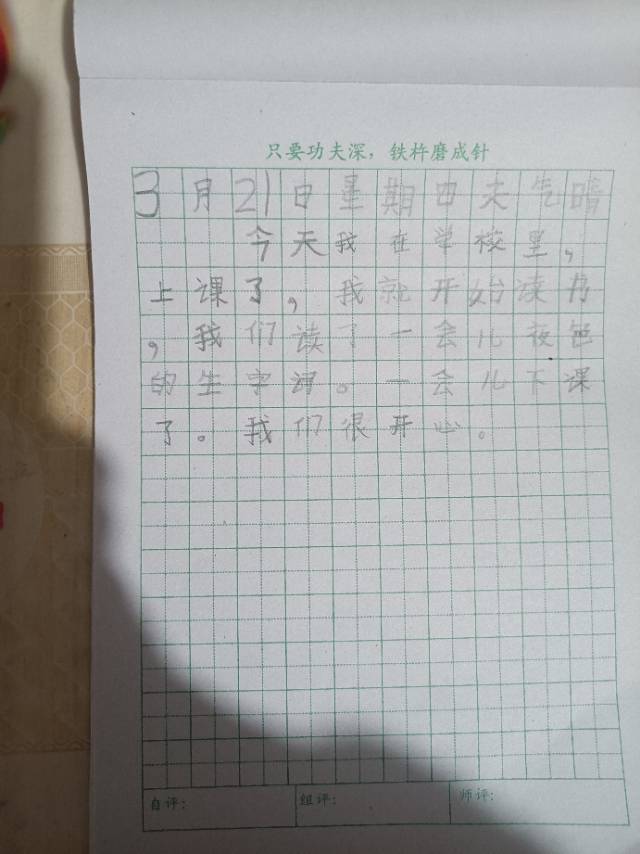 只要功夫深，铁杵磨成针
3月21日星期四天气晴
今天我在学校里，
上课了，我就开始读书
，我们读了一会儿夜色
的生字词。一会儿下课
了。我们很开心。
自评： 组评： 师评：